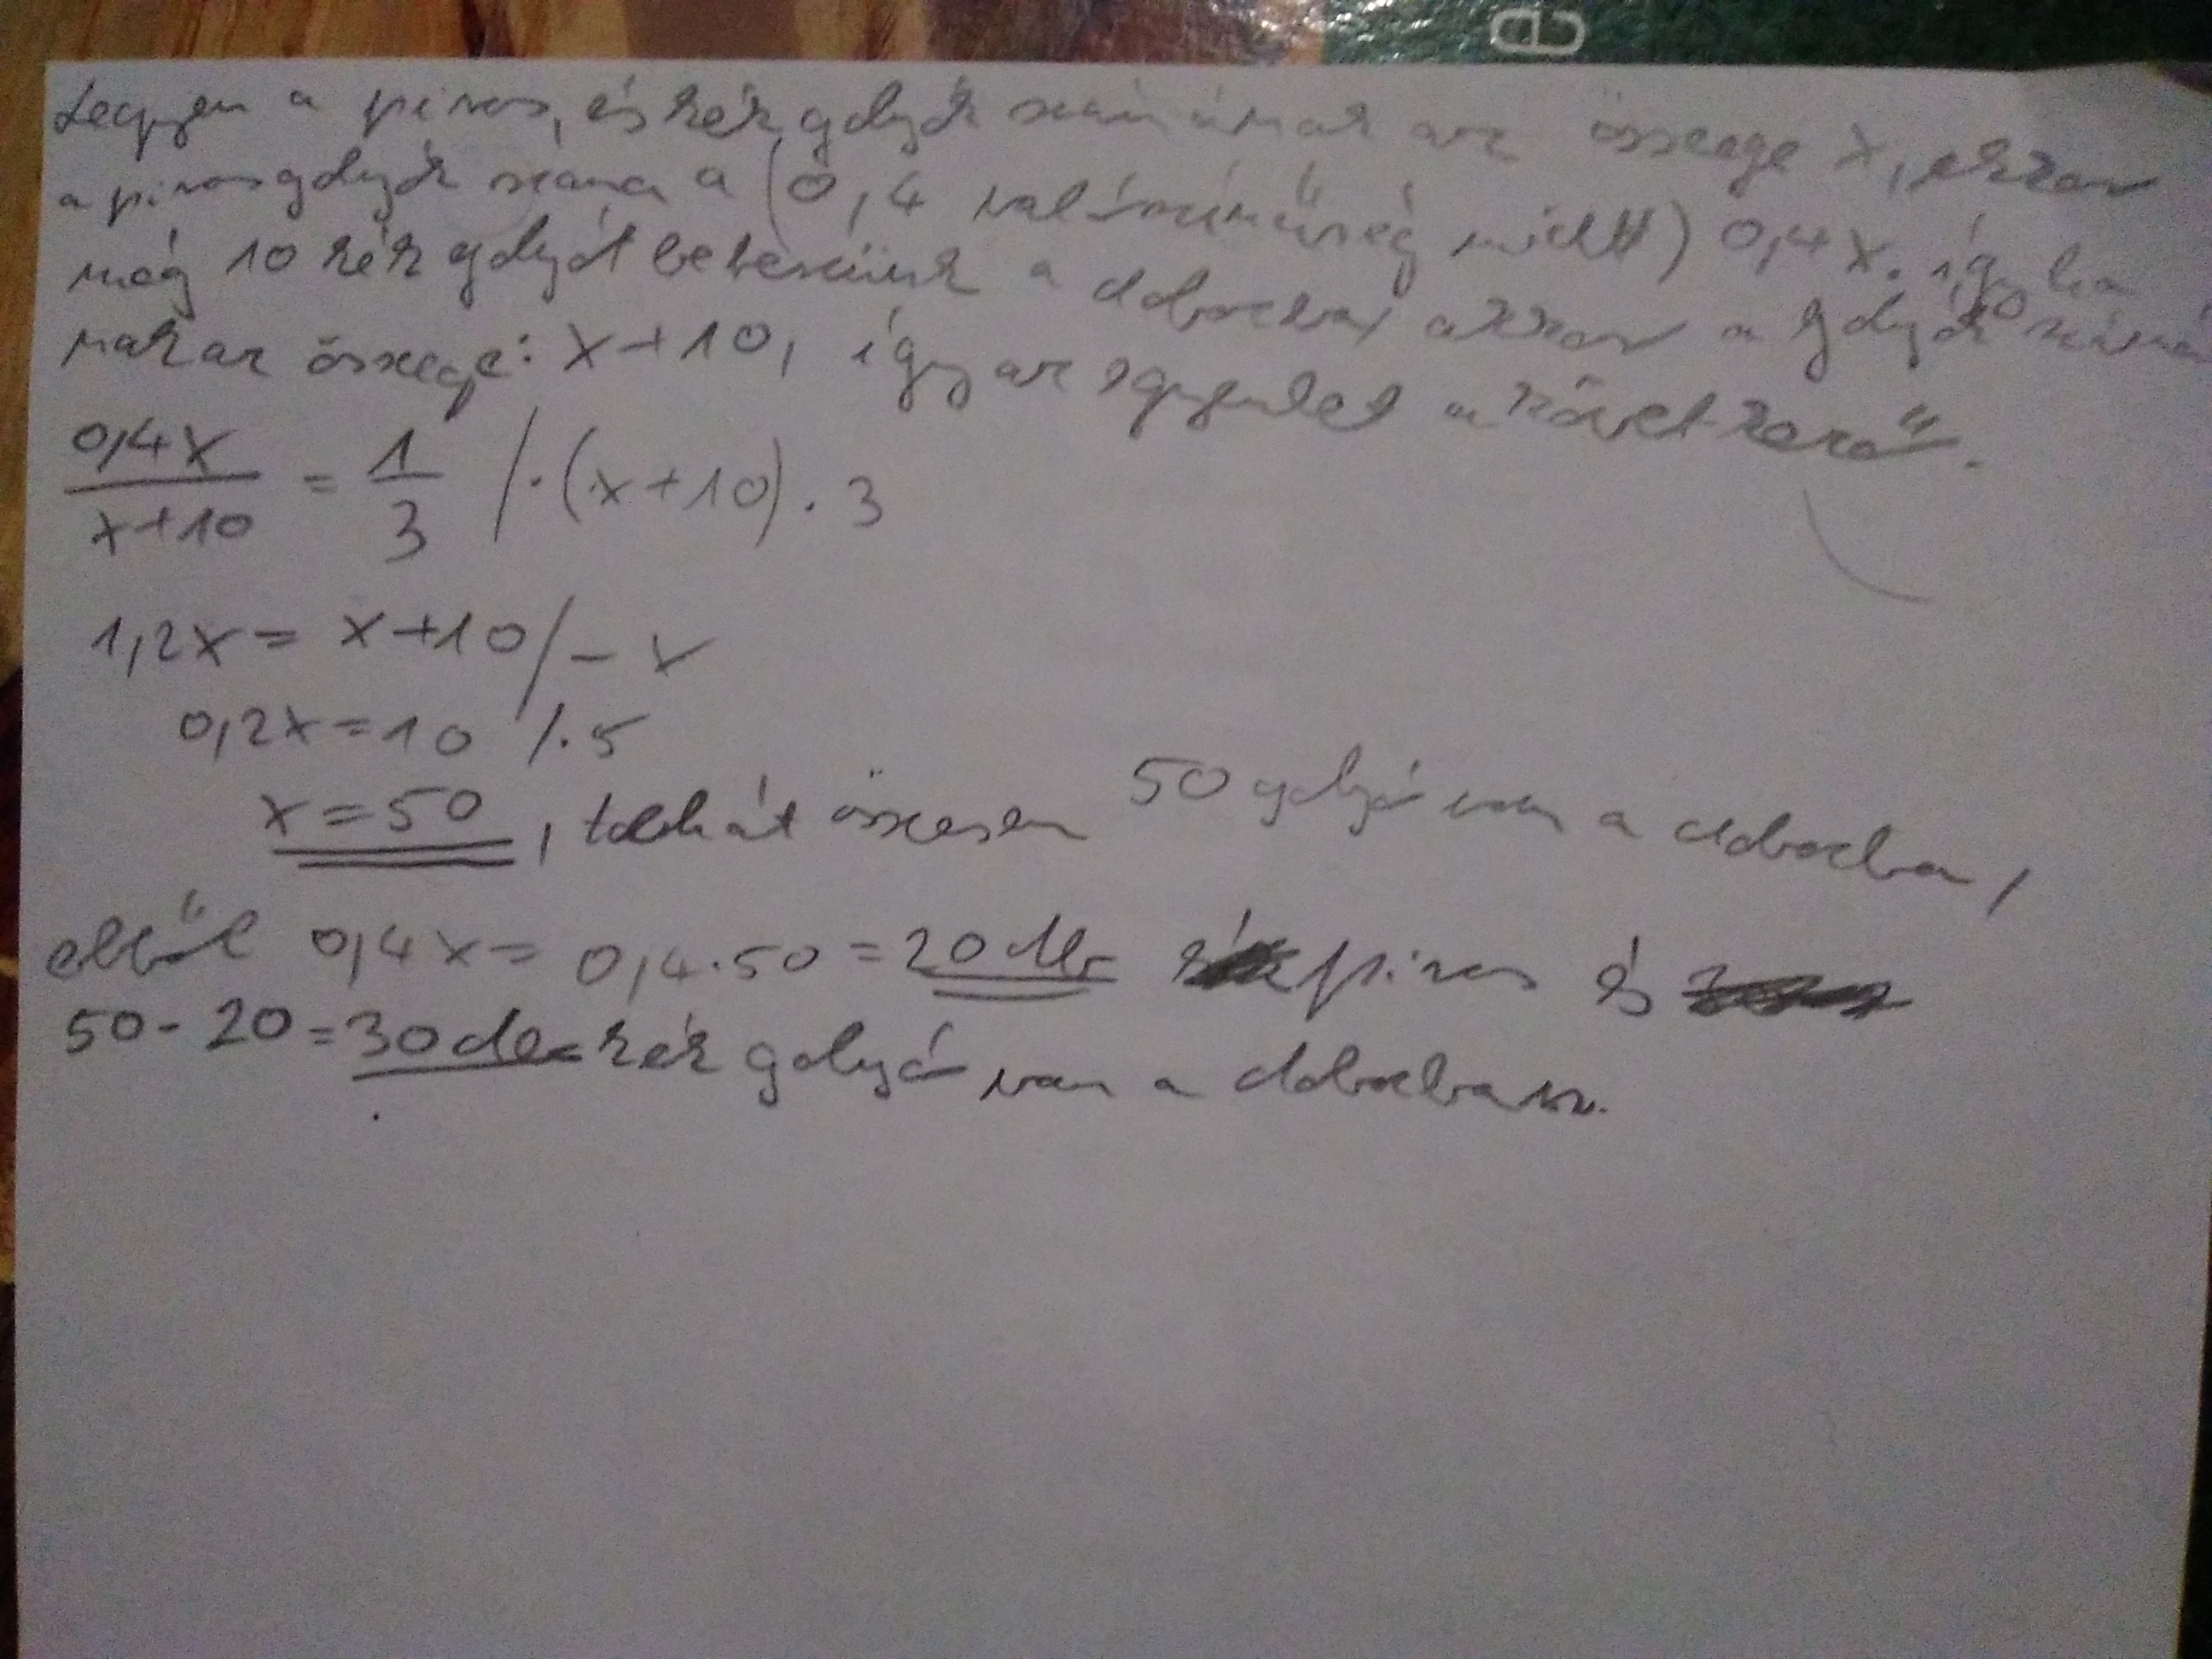 Legyen a piros, és kék golyók számának az összege x, ekkor
a piros golyók száma a (0,4 valószínűség miatt) 0,4x. így ha
még 10 kék golyót beteszünk a dobozba, akkor a golyók számá
nak az összege: x+10, így az egyenlet a következő.
0,4x / x+10 = 1/3 /·(x+10)·3
1,2x = x+10 /-x
0,2x=10 /·5
x=50, tehát összesen 50 golyó van a dobozba,
ebből 0,4x= 0,4·50=20 db piros és
50-20=30 db kék golyó van a dobozban.